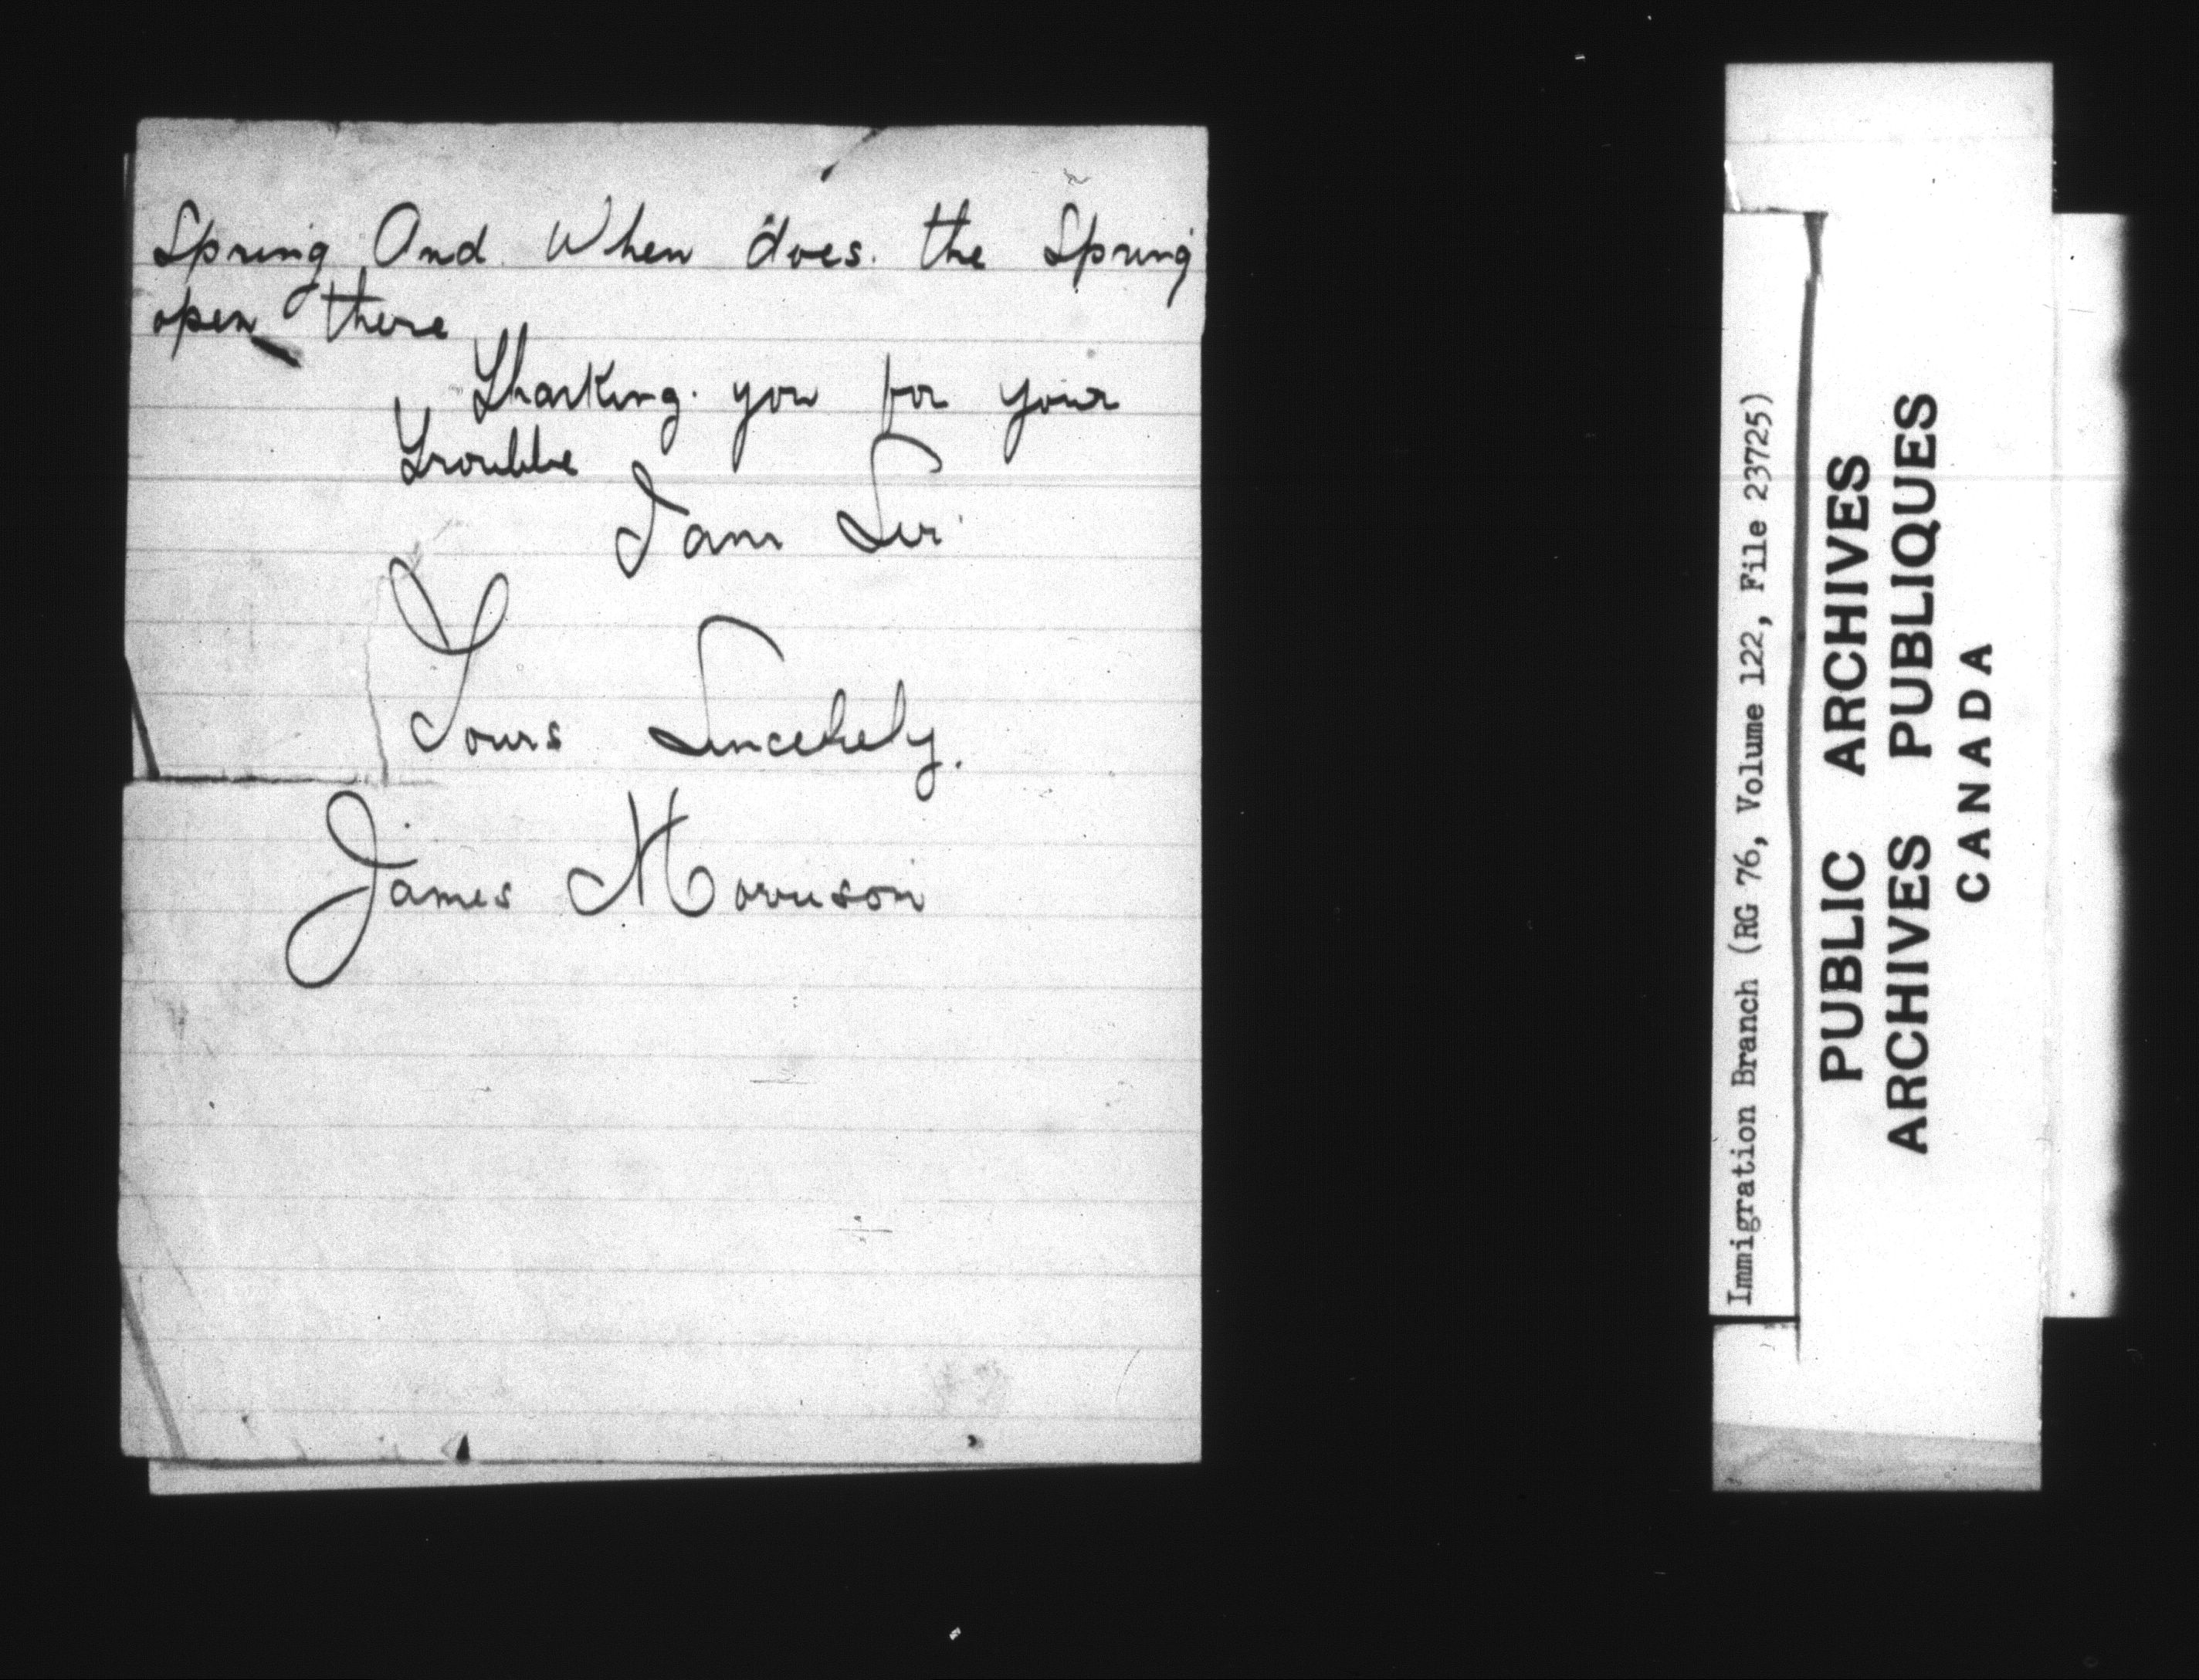 Spring And When does the Spring
open there
Thanking you for your
Trouble
I am Sir
Yours Sincerely.
James Morrison
Immigration Branch (RG 76, Volume 122, File 23725)
PUBLIC ARCHIVES
ARCHIVES PUBLIQUES
CANADA